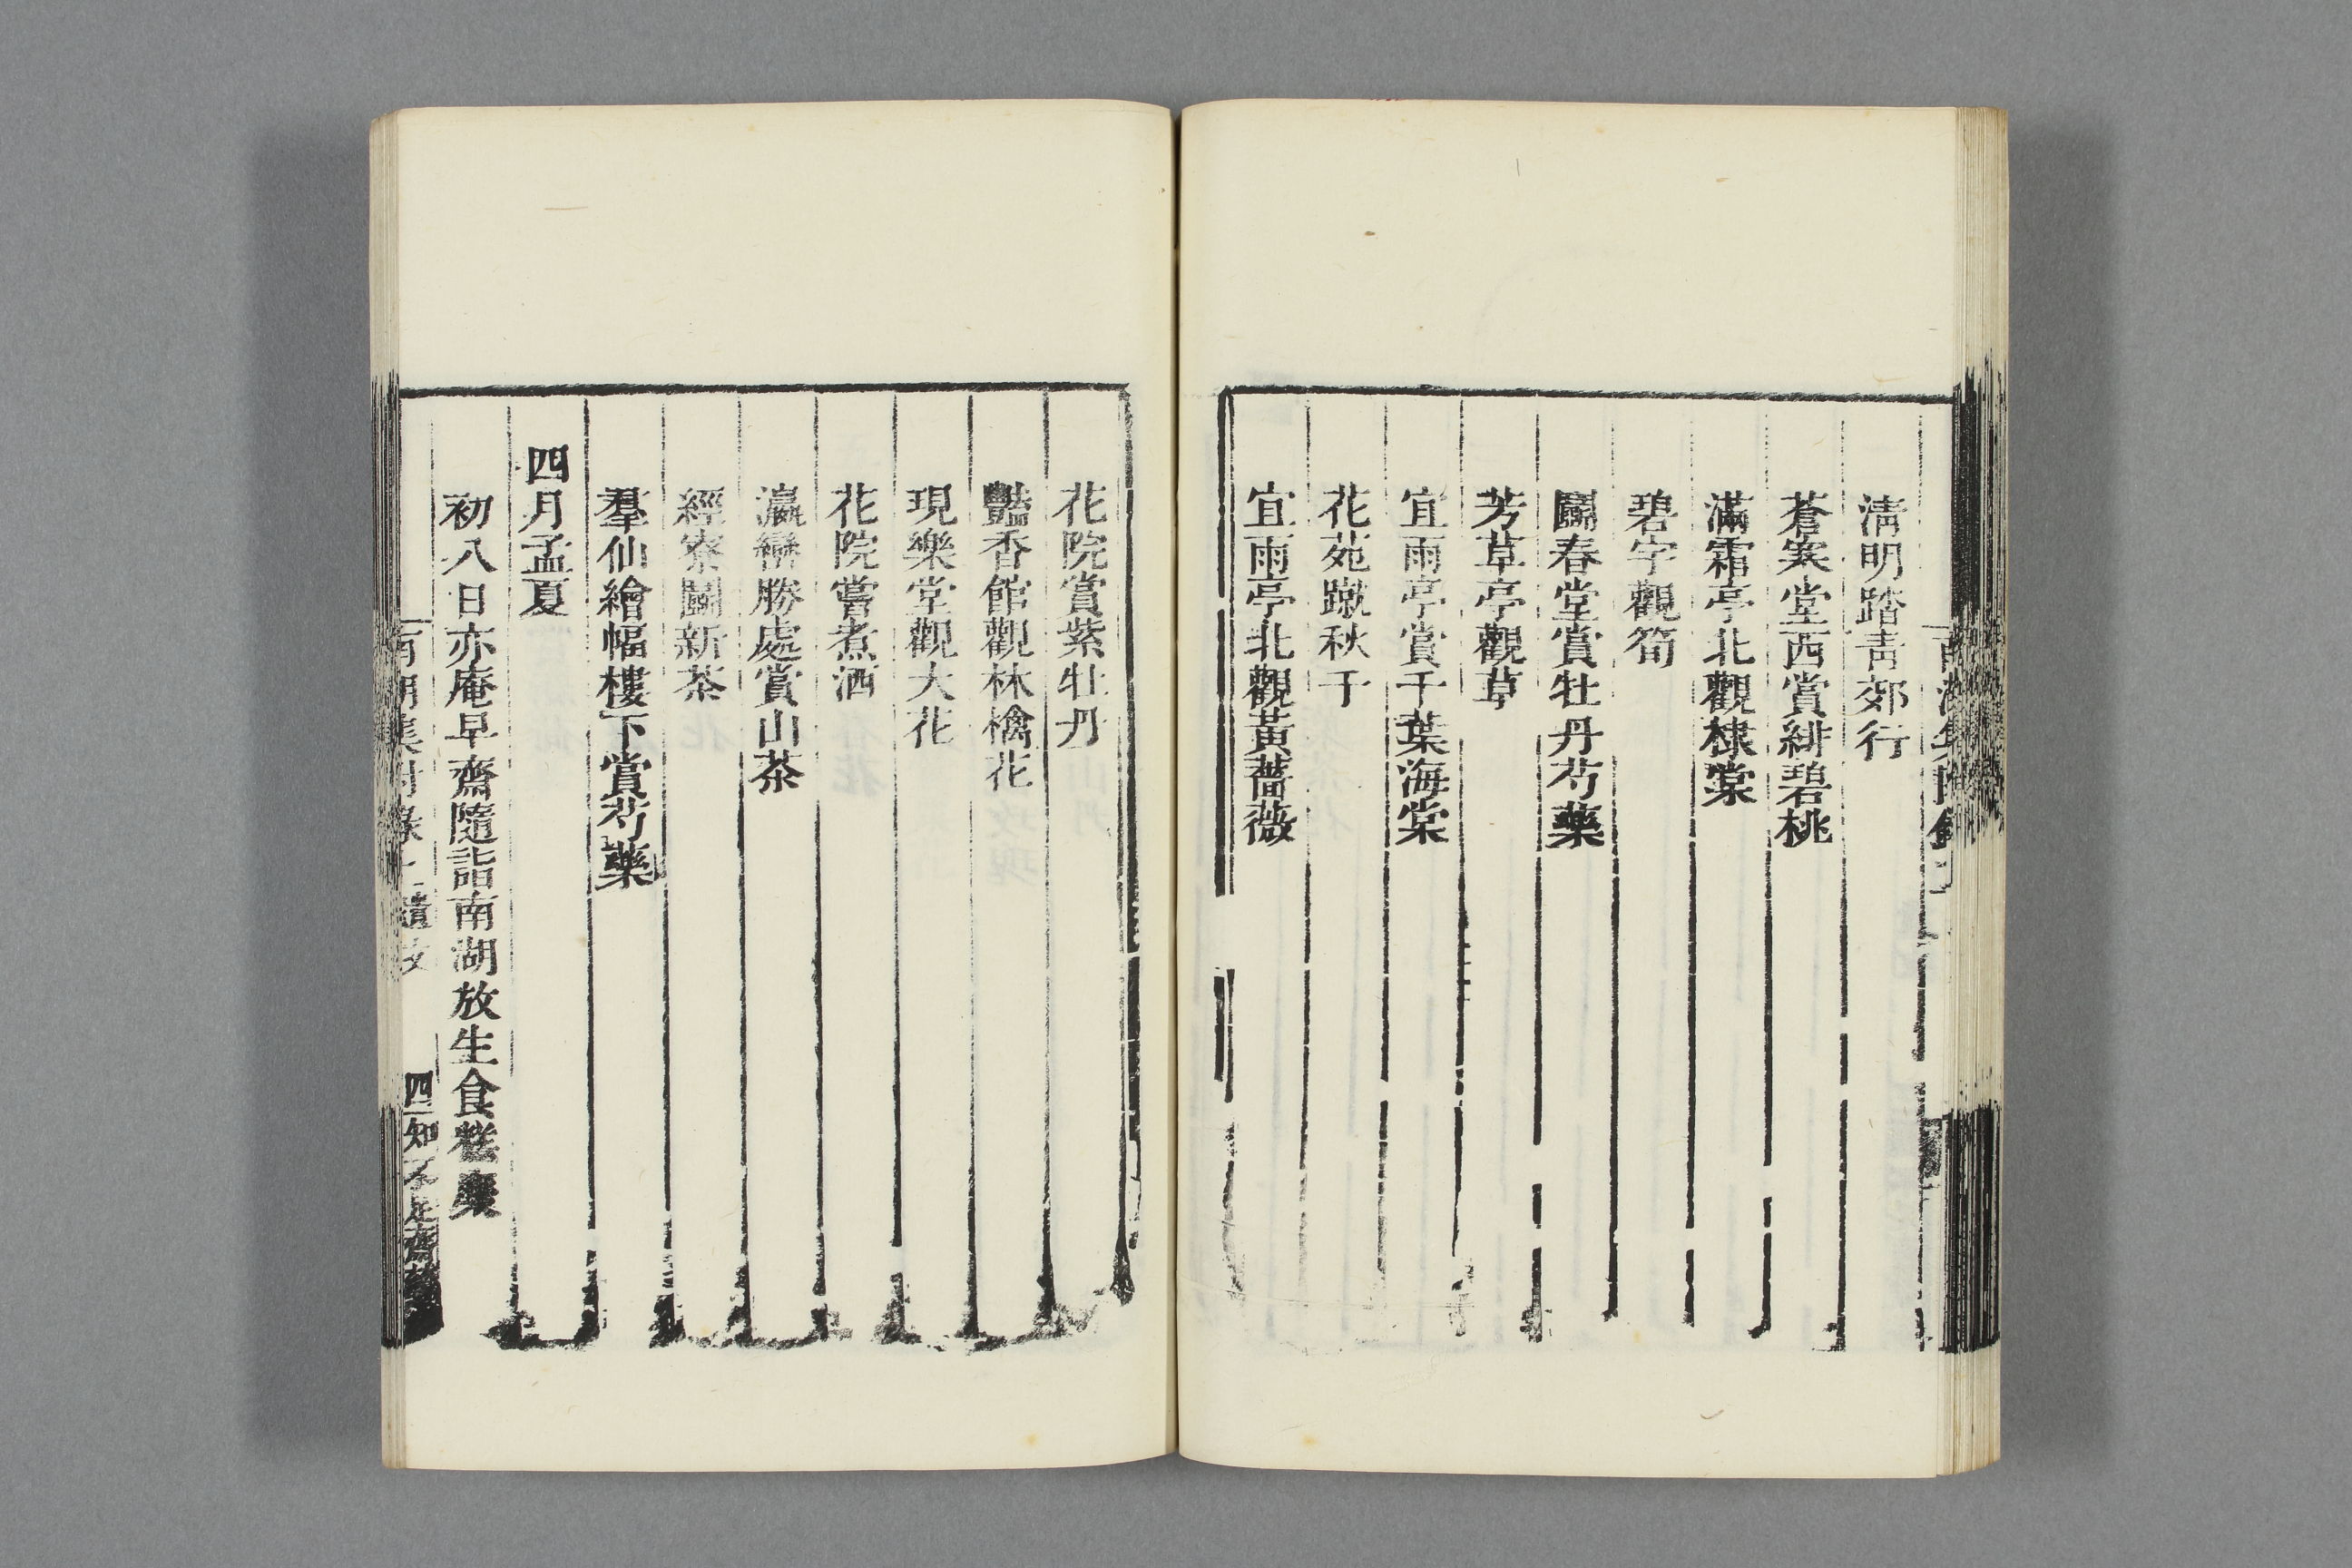 淸明踏靑郊行
蒼寒堂西賞緋碧桃
滿霜亭北觀棣棠
碧宇觀筍
鬭春堂賞牡丹芍藥
芳草亭觀草
宜雨亭賞千葉海棠
花苑蹴秋千
宜雨亭北觀黃薔薇
花院賞紫牡丹
豔香館觀林檎花
現樂堂觀大花
花院嘗煮酒
瀛巒勝處賞山茶
經寮鬭新茶
羣仙繪幅樓下賞芍藥
四月孟夏
初八日亦庵早齋隨詣南湖放生食糕糜
南湖集附錄上遺文
四知不足齋